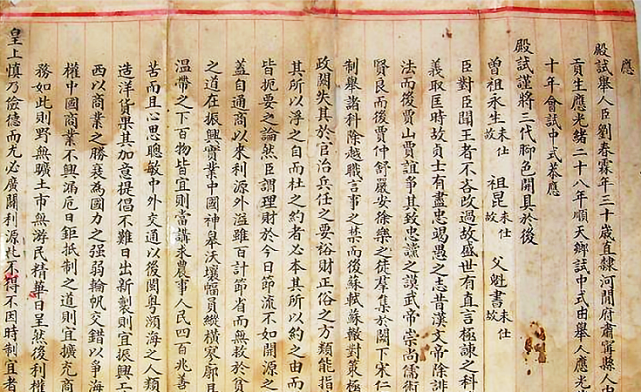 應
殿試舉人臣劉春霖年三十歲直隸河間府肅寧縣人由
貢生應光緒二十八年順天鄉試中式由舉人應光
十年會試中式恭應
殿試謹將三代腳色開具於後
曾祖永生未仕故 祖昆未仕故 父魁書未仕故
臣對臣聞王者不吝改過故盛世有直言極諫之科
義取匡時故貞士有盡忠竭愚之志昔漢文帝除誹
法而後賈山賈誼爭其致忠讜之謨武帝崇尚儒術
賢良而後賈仲舒嚴安徐樂之徒羣集於闕下宋仁
制舉諸科除越職言事之禁而後蘇軾蘇轍對策極
政闕失其於官治兵任之要裕財正俗之方類能指
其所以浮之自而杜之約者必本其所以約之由而
皆扼要之論然臣謂理財於今日節流不如開源之
蓋自通商以來利源外溢雖百計節省而無救於貧
之道在振興實業中國神臯沃壤幅員縱橫寥廓且
溫帶之下百物皆宜則當講求農事人民四百兆善
苦而且心思聰敏中外交通以後閩粵瀕海之人類
造洋貨果其加意提倡不難日出新製則宜振興工
西以商業之勝衰為國力之强弱輪帆交錯以爭海
權中國商業不興漏卮日鉅抵制之道則宜擴充商
務如此則野無曠土市無游民精華日呈然後利權
皇上慎乃儉德而尤必廣開利源此不得不因時制宜者